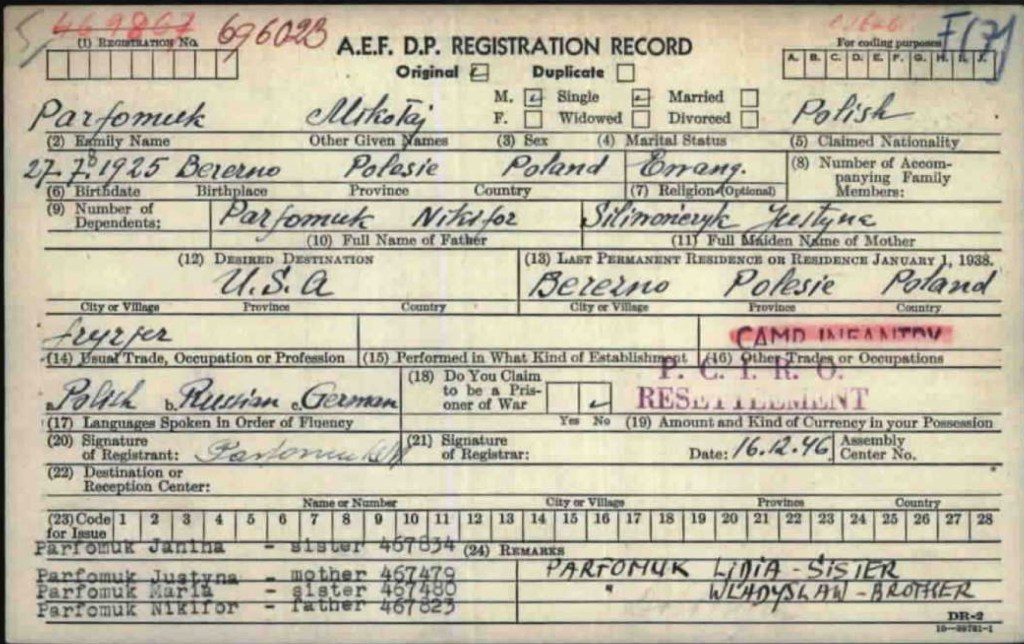 696023
(1) REGISTRATION NO.
A.E.F. D.P. REGISTRATION RECORD
Original Duplicate
For coding purposes
F(7)
A. B. C. D. E. F. G. H. I. J.
M. Single Married
F. Widowed Divorced
Parfomuk Mikołaj Polish
(2) Family Name Other Given Names (3) Sex (4) Marital Status (5) Claimed Nationality
27.7.1925 Berezno Polesie Poland Ewang.
(6) Birthdate Birthplace Province Country (7) Religion (Optional)
(8) Number of Accompanying Family Members:
(9) Number of Dependents:
Parfomuk Nikifor
(10) Full Name of Father
Justyna
(11) Full Maiden Name of Mother
(12) DESIRED DESTINATION
U.S.A
City or Village Province Country
(13) LAST PERMANENT RESIDENCE OR RESIDENCE JANUARY 1, 1938.
Berezno Polesie Poland
City or Village Province Country
fryzjer
CAMP INFANTRY
(14) Usual Trade, Occupation or Profession (15) Performed in What Kind of Establishment (16) Other Trades or Occupations
P. C. I. R. O.
RESETTLEMENT
a. Polish b. Russian c. German
(17) Languages Spoken in Order of Fluency
(18) Do You Claim to be a Prisoner of War
Yes No
(19) Amount and Kind of Currency in your Possession
(20) Signature of Registrant: Parfomuk M
(21) Signature of Registrar:
Date: 16.12.46
Assembly Center No.
(22) Destination or Reception Center:
Name or Number City or Village Province Country
(23) Code for Issue 1 2 3 4 5 6 7 8 9 10 11 12 13 14 15 16 17 18 19 20 21 22 23 24 25 26 27 28
Parfomuk Janina - sister 467834
(24) REMARKS
Parfomuk Justyna - mother 467479
Parfomuk Maria - sister 467480
Parfomuk Nikifor - father 467823
PARFOMUK LIDIA - SISTER
" WLADYSLAW - BROTHER
DR-2